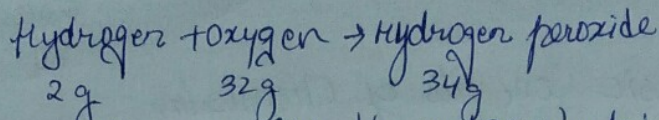 Hydrogen + Oxygen → Hydrogen peroxide
2g 32g 34g